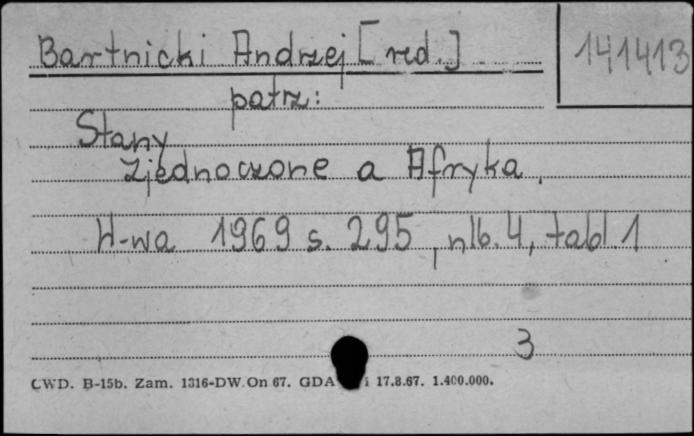 Bartnicki Andrzej [red.]
141413
patrz:
Stany
Zjednoczone a Afryka.
W-wa 1969 s. 295, nlb. 4, tabl 1
3
CWD. B-15b. Zam. 1316-DW.On 67. GDA i 17.8.67. 1.400.000.